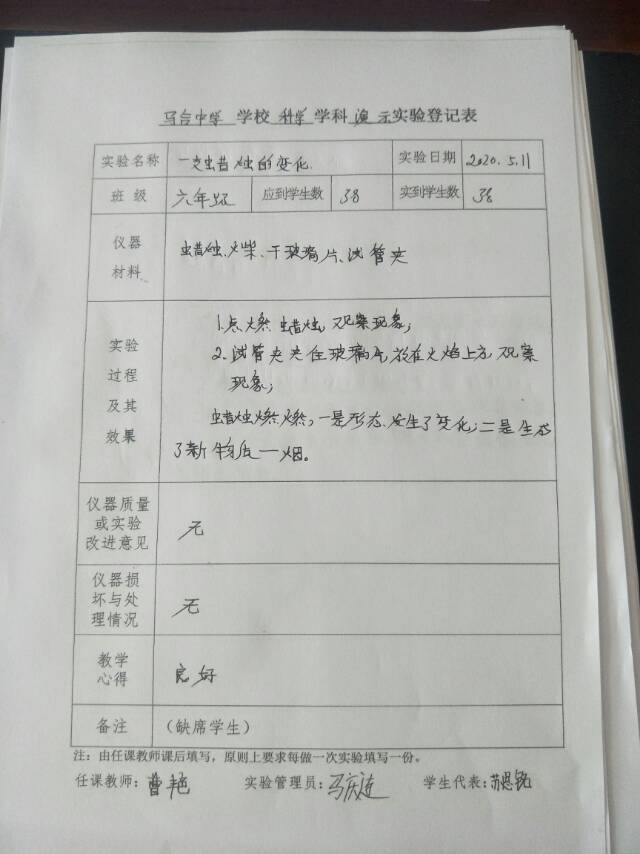 马台中学 学校 科学 学科 演 示实验登记表
实验名称 一支蜡烛的变化. 实验日期 2020.5.11
班 级 六年级 应到学生数 38 实到学生数 38
仪器
材料
蜡烛、火柴、干玻璃片、试管夹
实验
过程
及其
效果
1.点燃蜡烛,观察现象;
2.试管夹夹住玻璃片,放在火焰上方,观察
现象;
蜡烛燃燃,一是形态发生了变化;二是生成
了新物质一烟。
仪器质量
或实验
改进意见
无
仪器损
坏与处
理情况
无
教学
心得
良好
备注 (缺席学生)
注:由任课教师课后填写,原则上要求每做一次实验填写一份。
任课教师:曹艳 实验管理员:马庆连 学生代表:苏恩锐